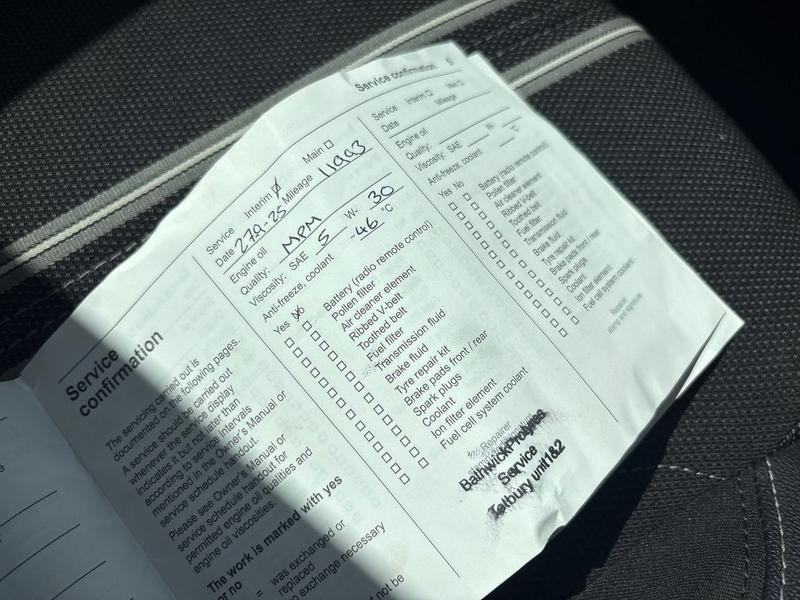 Service
confirmation
The servicing carried out is
documented on the following pages.
A service should be carried out
whenever the service display
indicates it but not later than
according to service intervals
mentioned in the Owner's Manual or
service schedule handout.
Please see Owner's Manual or
service schedule handout for
permitted engine oil qualities and
engine oil viscosities.
The work is marked with yes
or no
= was exchanged or
replaced
exchange necessary
not be
Service Interim Main
Date Mileage 11993
Engine oil
Quality: MPM
Viscosity: SAE 5 W- 30
Anti-freeze, coolant -46 °C
Yes
Battery (radio remote control)
Pollen filter
Air cleaner element
Ribbed V-belt
Toothed belt
Fuel filter
Transmission fluid
Brake fluid
Tyre repair kit
Brake pads front / rear
Spark plugs
Coolant
Ion filter element
Fuel cell system coolant
Repairer
Service
Tetbury unit1&2
Service confirmation
Service Interim
Date Mileage
Engine oil
Quality:
Viscosity: SAE W-
Anti-freeze, coolant °C
Yes No
Battery (radio remote control)
Pollen filter
Air cleaner element
Ribbed V-belt
Toothed belt
Fuel filter
Transmission fluid
Brake fluid
Tyre repair kit
Brake pads front / rear
Spark plugs
Coolant
Ion filter element
Fuel cell system coolant
Repairer
stamp and signature